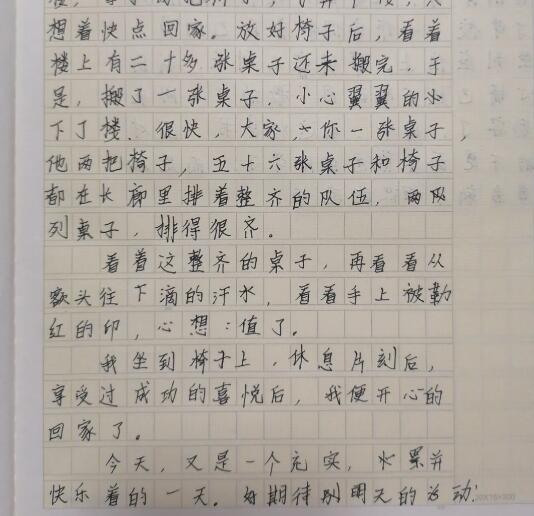 想着快点回家。放好椅子后，看着
楼上有二十多张桌子还未搬完，于
是，搬了一张桌子，小心翼翼的小
下了楼、很快，大家，你一张桌子，
他两把椅子，五十六张桌子和椅子
都在长廊里排着整齐的队伍，两队
列桌子，排得很齐。
看着这整齐的桌子，再看看从
额头往下滴的汗水，看看手上被勒
红的印，心想：值了。
我坐到椅子上，休息片刻后，
享受过成功的喜悦后，我便开心的
回家了。
今天，又是一个充实，累并
快乐着的一天。期待明天的动